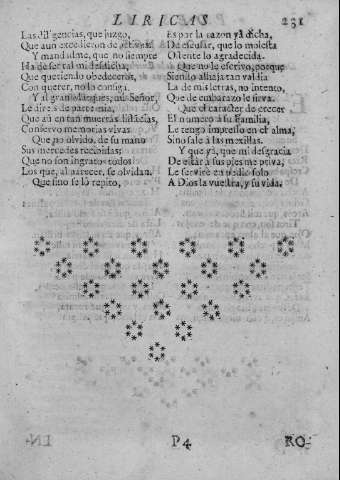 LIRICAS. 231
Las diligencias, que juzgo,
Que aun excedieron de
Y mandasme, que no siempre
Ha de ser tal mi desdicha,
Que queriendo obedeceros,
Con querer, no lo consiga.
Y al gran Marques, mi Señor,
Le direis de parte mia,
Que aũ en tan muertas
Conservo memorias vivas
Que no olvido, de su mano
Sus mercedes recibidas;
Que no son ingratos todos
Los que, al parecer, se olvidan.
Que sino se lo repito,
Es por la razon yà dicha,
De escusar, que lo molesta
Oriente lo agradecida.
Que no le escrivo, porque
Siendo alhaja tan valdia
La de mis letras, no intento,
Que de embarazo le sirva.
Que el caracter de crecer
El numero à su Familia,
Le tengo impresso en el alma,
Sino sale à las mexillas.
Y que yà, que mi desgracia
De estàr à sus pies me priva,
Le servirè en pedir solo
A Dios la vuestra, y su vida.
P4 RO-